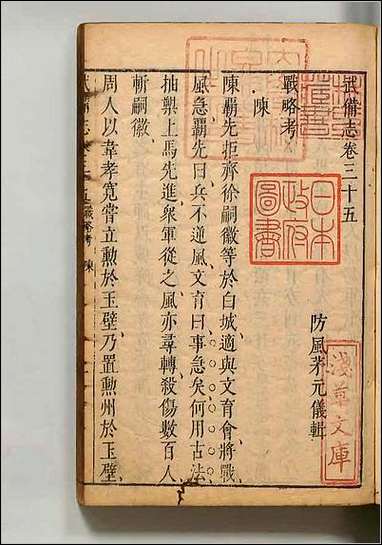 武備志卷三十五
防風茅元儀輯
戰略考
陳
陳霸先拒齊徐嗣徽等於白城適與文育會將戰
風急霸先曰兵不逆風文育曰事急矣何用古法
抽槊上馬先進衆軍從之風亦尋轉殺傷數百人
斬嗣徽
周人以韋孝寬嘗立勲於玉壁乃置勲州於玉壁
日本
政府
圖書
淺草文庫